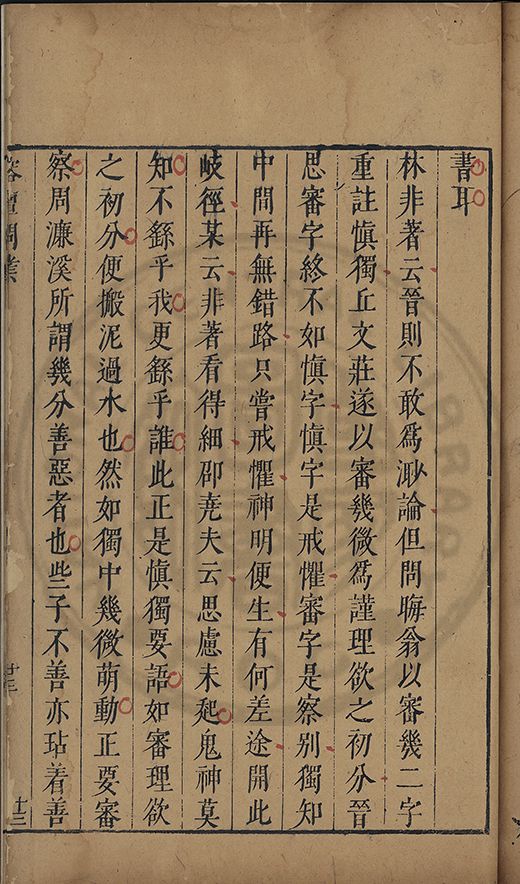 書耳
林非著云晉則不敢爲渺論但問晦翁以審幾二字
重註慎獨丘文莊遂以審幾微爲謹理欲之初分晉
思審字終不如慎字慎字是戒懼審字是察別獨知
中間再無錯路只嘗戒懼神明便生有何差途開此
岐徑某云非著看得細卲堯夫云思慮未起鬼神莫
知不繇乎我更繇乎誰此正是慎獨要語如審理欲
之初分便搬泥過水也然如獨中幾微萌動正要審
察周濂溪所謂幾分善惡者也些子不善亦玷着善
榕壇問業
十三